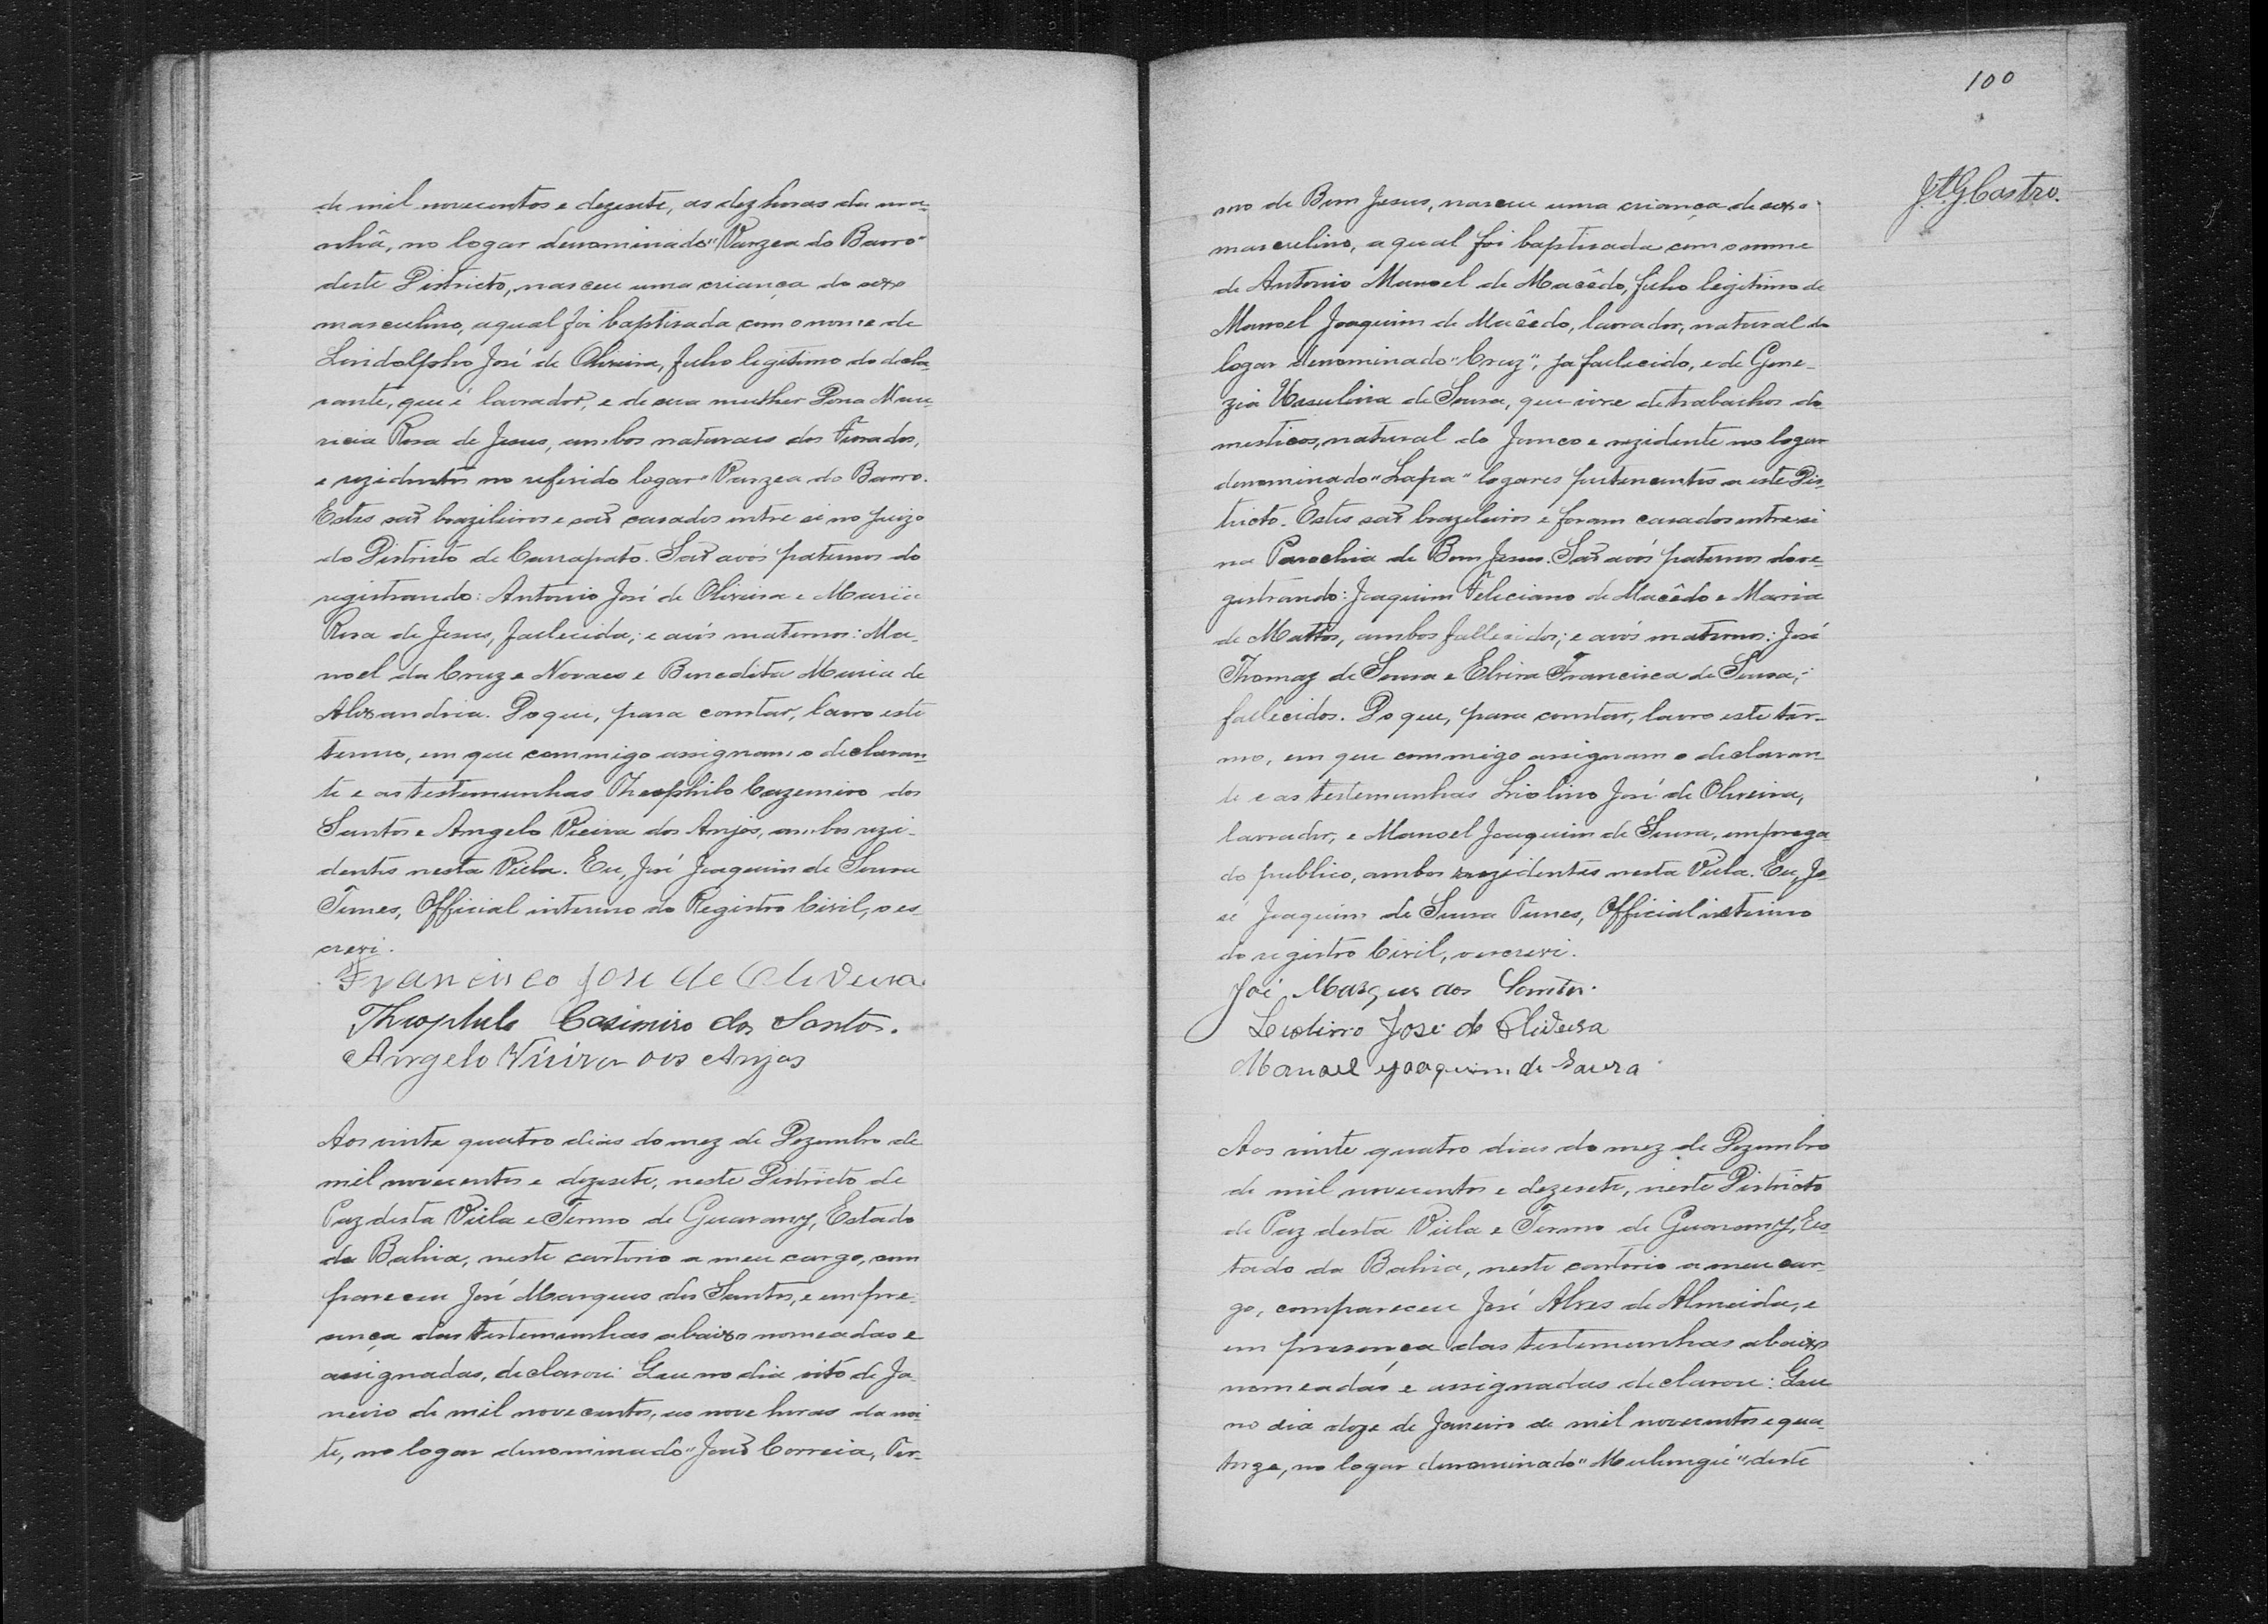 de mil novecentos e dezesete, as dez horas da ma-
nhã, no logar denominado "Varzea do Barro"
deste Districto, nasceu uma criança do sexo
masculino, a qual foi baptisada com o nome de
Lindolpho José de Oliveira, filho legitimo do decla-
rante, que é lavrador, e de sua mulher Dona
Rosa de Jesus, ambos naturaes dos Furados,
e rezidentes no referido logar "Varzea do Barro.
Estes são brazileiros e são casados entre si no Juizo
do Districto de Carrapato. São avós paternos do
registrando: Antonio José de Oliveira e Maria
Rosa de Jesus, fallecida; e avós maternos: Ma-
noel da Cruz e Novaes e Benedita Maria de
Alixandria. Do que, para constar, lavro este
termo, em que commigo assignam o declaran-
te e as testemunhas Theophilo Cazemiro dos
Santos e Angelo Vieira dos Anjos, ambos rezi-
dentes nesta Villa. Eu, José Joaquim de Sousa
Tunes, Official interino do Registro Civil, o es-
crevi.
Francisco José de Oliveira
Theophilo Casimiro dos Santos.
Angelo Vieira dos Anjos
Aos vinte quatro dias do mez de Dezembro de
mil novecentos e dezesete, neste Districto de
Paz desta Villa e Termo de Guarany, Estado
da Bahia, neste cartorio a meu cargo, com
pareceu José Marques dos Santos, e em pre-
sença das testemunhas abaixo nomeadas e
assignadas, declarou: Que no dia oito de Ja-
neiro de mil novecentos, as nove horas da noi-
te, no logar denominado "João Correia, Ter-
100
mo de Bom Jesus, nasceu uma criança de sexo
masculino, a qual foi baptisada com o nome
de Antonio Manoel de Macêdo, filho legitimo de
Manoel Joaquim de Macêdo, lavrador, natural do
logar denominado "Cruz", ja fallecido, e de Gene-
zia Ursulina de Sousa, que vive de trabalhos do-
mesticos, natural do Junco e rezidente no logar
denominado "Lapa" logares pertencentes a este Dis-
tricto. Estes são brazileiros e foram casados entre si
na Parochia de Bom Jesus. São avós paternos do re-
gistrando: Joaquim Feliciano de Macêdo e Maria
de Mattos, ambos fallecidos; e avós maternos: José
Thomaz de Sousa e Elvira Francisca de Sousa,
fallecidos. Do que, para constar, lavro este ter-
mo, em que commigo assignam o declaran-
te e as testemunhas Liolino José de Oliveira,
lavrador, e Manoel Joaquim de Sousa, emprega-
do publico, ambos rezidentes nesta Villa. Eu, Jo-
sé Joaquim de Sousa Tunes, Official interino
do registro Civil, o escrevi.
José Marques dos Santos.
Liolino José de Oliveira
Manoel Joaquim de Souza
Aos vinte quatro dias do mez de Dezembro
de mil novecentos e dezesete, neste Districto
de Paz desta Villa e Termo de Guarany, Es-
tado da Bahia, neste cartorio a meu car-
go, compareceu José Alves de Almeida, e
em presença das testemunhas abaixo
nomeadas e assignadas declarou: Que
no dia doze de Janeiro de mil novecentos e qua-
torze, no logar denominado "Mulungú" deste
Castro.